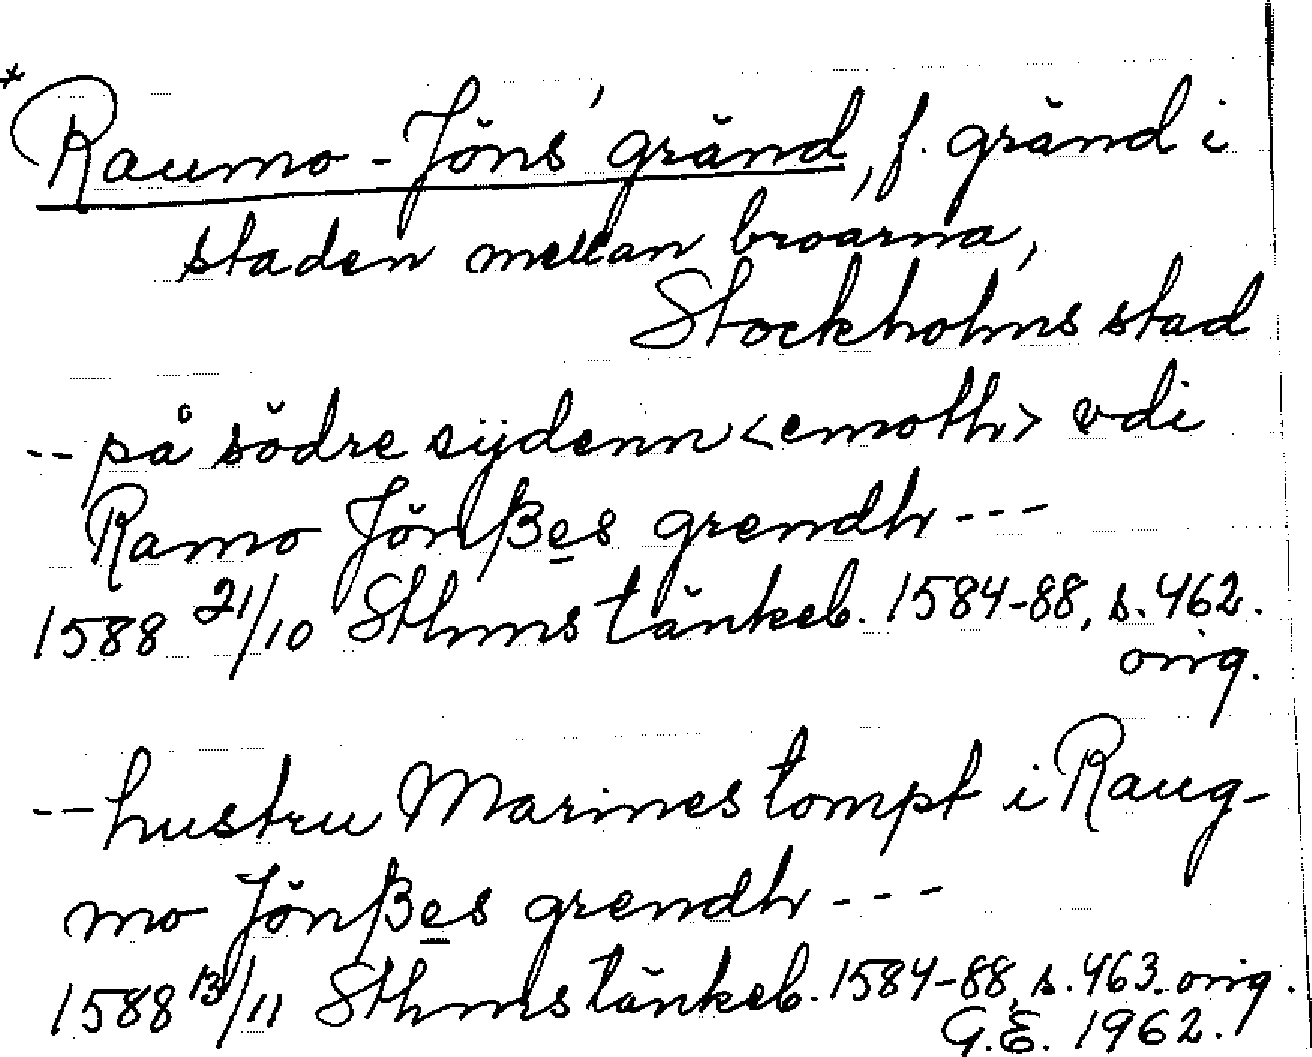 * Raumo-Jöns' gränd, f. gränd i
staden mellan broarna,
Stockholms stad
-- på södre sijdenn <emoth> vdi
Ramo Jönßes grendh ---
1588 21/10 Sthms tänkeb. 1584-88, s. 462.
orig.
-- hustru Marines tompt i Raug-
mo Jönßes grendh ---
1588 13/11 Sthms tänkeb. 1584-88, s. 463. orig.
G.E. 1962.